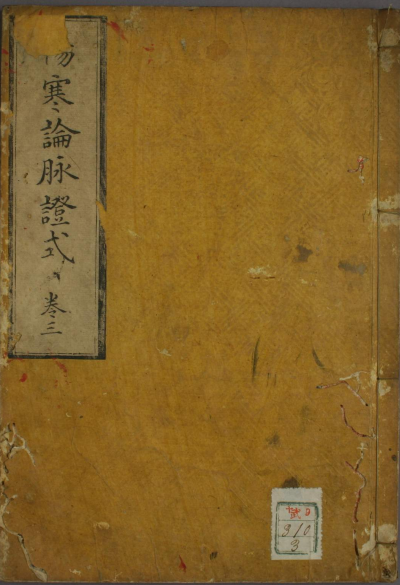 傷寒論脉證式 巻三
310
3